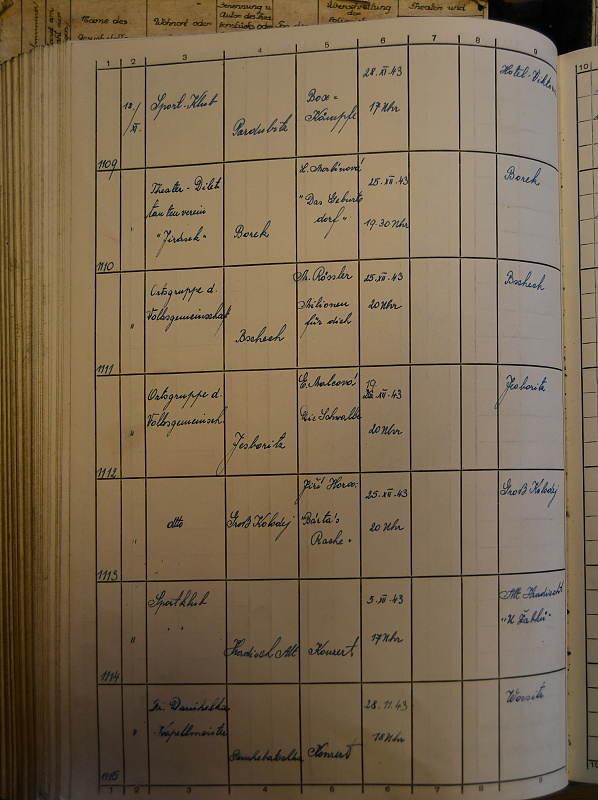 Name des
Wohnort oder
Autor des
Theater und
1 2 3 4 5 6 7 8 9 10
1109
12/XI.
Sport-Klub
Pardubitz
Box-
Kämpfe
28.XI.43
17 Uhr
Hotel-Viktoria
1110
"
Theater-Dilet
tantenverein
"Jirásek"
Borek
"Das Geburts
dorf"
25.XII.43
19.30 Uhr
Borek
1111
"
Ortsgruppe d.
Volksgemeinschaft
Bschech
A. Rössler
Milionen
für dich
25.XII.43
20 Uhr
Bschech
1112
"
Ortsgruppe d.
Volksgemeinsch.
Jesboritz
Die Schwalbe
19.
XII.43
20 Uhr
Jesboritz
1113
"
dtto
Groß Kolodej
Jiří Hora:
"Bárta's
Rache"
25.XII.43
20 Uhr
Groß Kolodej
1114
"
Sportklub
Hradisch Alt
Konzert
5.XII.43
17 Uhr
Alt Hradischt
"U Žabků"
1115
"
Kapellmeister
Konzert
28.11.43
18 Uhr
Wositz
1 2 3 4 5 6 7 8 9